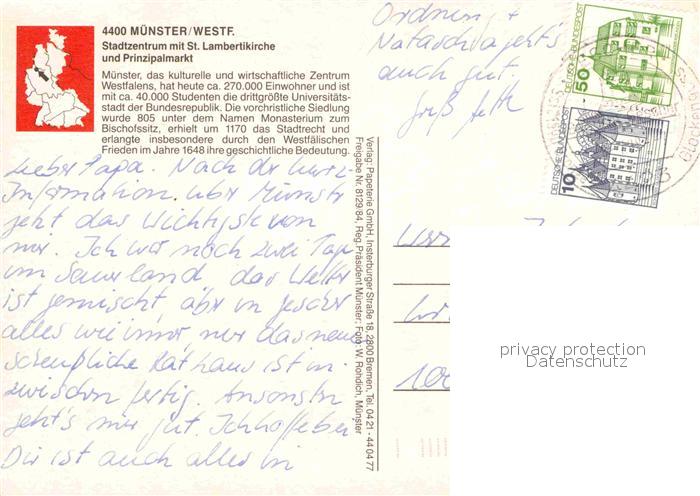 4400 MÜNSTER/WESTF.
Stadtzentrum mit St. Lambertikirche
und Prinzipalmarkt
Münster, das kulturelle und wirtschaftliche Zentrum
Westfalens, hat heute ca. 270.000 Einwohner und ist
mit ca. 40.000 Studenten die drittgrößte Universitäts-
stadt der Bundesrepublik. Die vorchristliche Siedlung
wurde 805 unter dem Namen Monasterium zum
Bischofssitz, erhielt um 1170 das Stadtrecht und
erlangte insbesondere durch den Westfälischen
Frieden im Jahre 1648 ihre geschichtliche Bedeutung.
Lieber Papa. Nach der Kurz-
Information über Münster
jetzt das Wichtigste von
mir. Ich war noch zwei Tage
im Sauerland das Wetter
ist gemischt aber in
alles wie immer nur das neue
scheußliche Rathaus ist in-
zwischen fertig. Ansonsten
geht's mir gut. Ich hoffe bei
Dir ist auch alles in
Ordnung +
Natascha geht's
auch gut.
Gruß
Verlag: Papeterie GmbH, Insterburger Straße 18, 2800 Bremen, Tel. 04 21 - 44 04 77
Freigabe Nr. 8129/84, Reg.Präsident Münster: Foto: W. Rohdich, Münster
DEUTSCHE BUNDESPOST
50
DEUTSCHE BUNDESPOST
10
100
privacy protection
Datenschutz